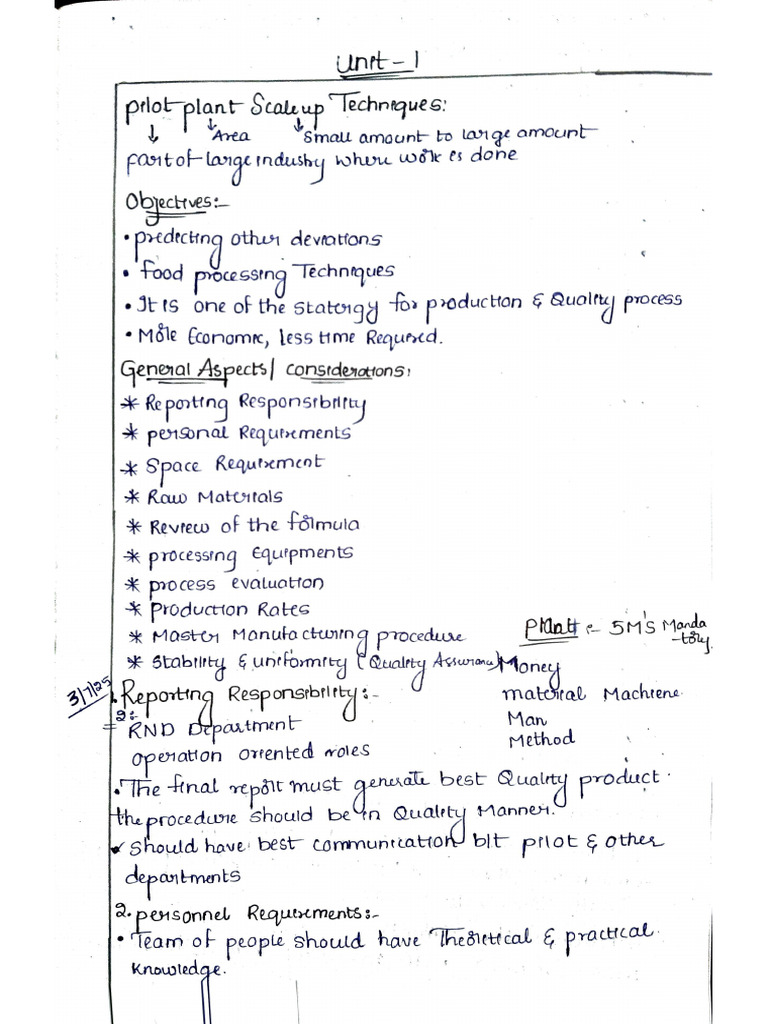 Unit - 1
Pilot plant Scale up Techniques:
↓ ↓Area ↓ Small amount to large amount
Part of large industry where work is done
Objectives:-
• Predicting other deviations
• Food processing Techniques
• It is one of the statergy for production & Quality process
• More Economic, less time Required.
General Aspects / Considerations:
* Reporting Responsibility
* personal Requirements
* Space Requirement
* Raw Materials
* Review of the formula
* processing Equipments
* process evaluation
* Production Rates
* Master Manufacturing procedure
* Stability & uniformity (Quality Assurance)
Plant :- 5M's Manda
-tory
Money
material Machiene
Man
Method
3/7/25
1. Reporting Responsibility:-
2:- RND Department
operation oriented roles
• The final report must generate best Quality product.
the procedure should be in Quality Manner.
• Should have best communication b/t pilot & other
departments
2. personnel Requirements:-
• Team of people should have Theoretical & practical
Knowledge.